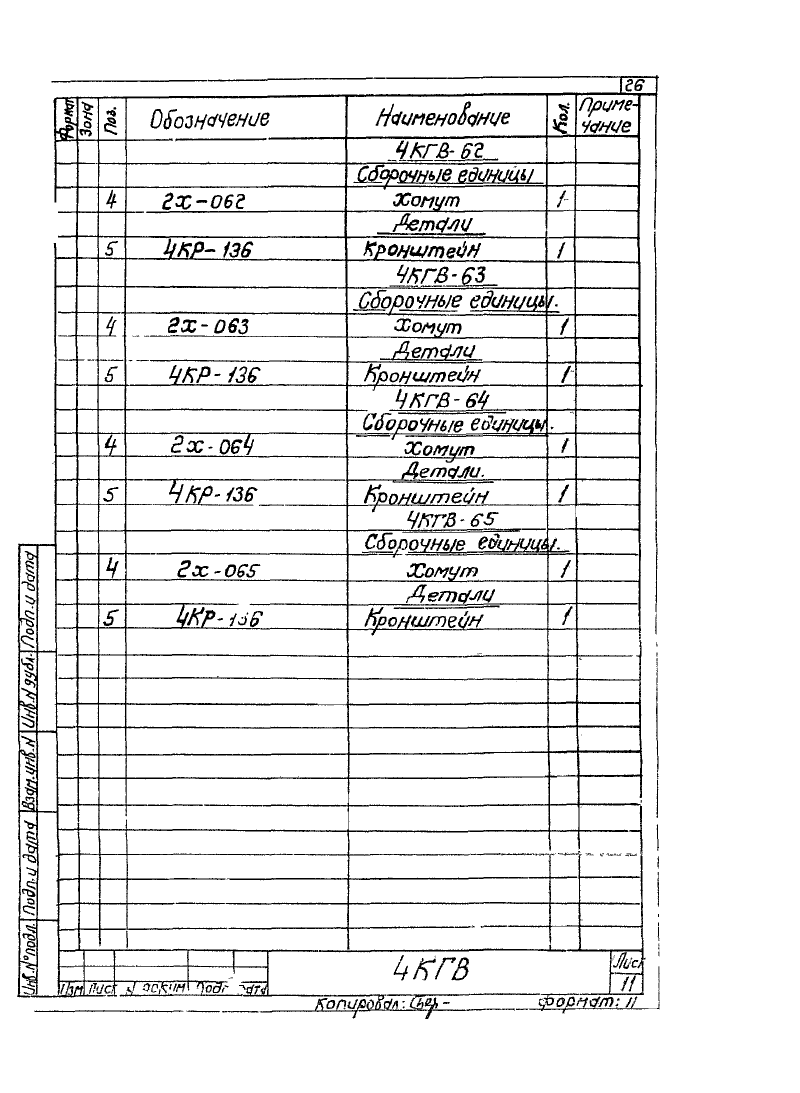 26
Формат Зона Поз. Обозначение Наименование Кол. Приме-
чание
4КГВ-62
Сборочные единицы
4 2х-062 Хомут 1
Детали
5 4КР-136 Кронштейн 1
4КГВ-63
Сборочные единицы.
4 2х-063 Хомут 1
Детали
5 4КР-136 Кронштейн 1
4КГВ-64
Сборочные единицы.
4 2х-064 Хомут 1
Детали.
5 4КР-136 Кронштейн 1
4КГВ-65
Сборочные единицы.
4 2х-065 Хомут 1
Детали
5 4КР-136 Кронштейн 1
Инв.№подл. Подп.и дата Взам.инв.N Инв.N дубл. Подп.и дата
4КГВ
Лист
11
Изм Лист N докум Подп Дата
Копировал: Формат: 11